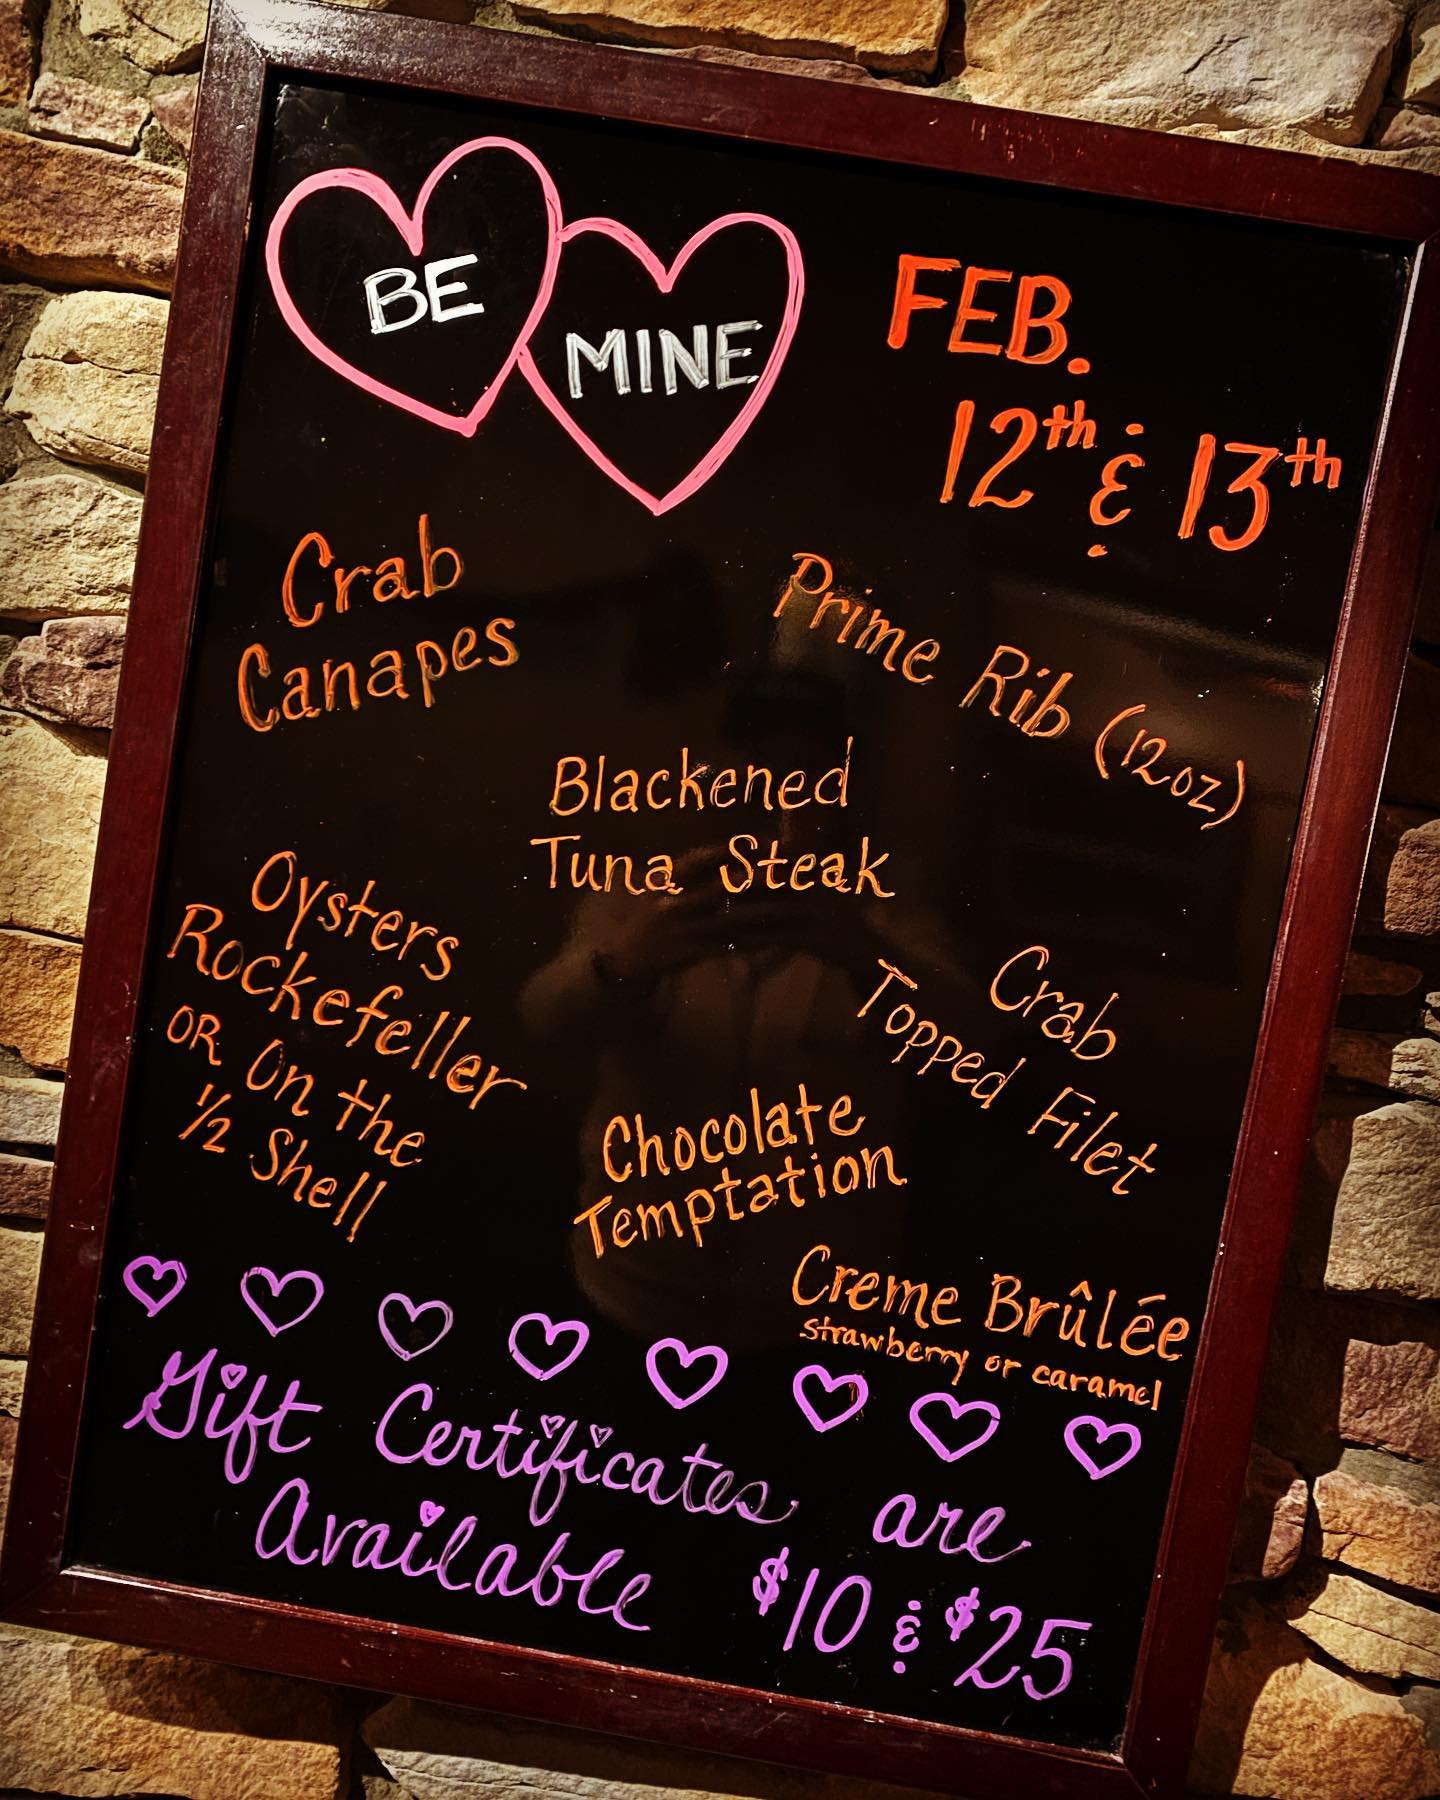 BE
MINE
FEB.
12th & 13th
Crab
Canapes
Prime Rib (12oz)
Blackened
Tuna Steak
Oysters
Rockefeller
OR On the
1/2 Shell
Crab
Topped Filet
Chocolate
Temptation
Creme Brûlée
strawberry or caramel
Gift Certificates are
Available $10 & $25